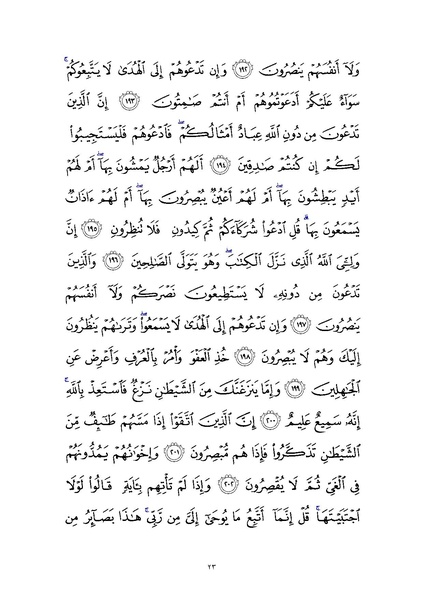 وَلَآ أَنفُسَهُمۡ يَنصُرُونَ ١٩٢ وَإِن تَدۡعُوهُمۡ إِلَى ٱلۡهُدَىٰ لَا يَتَّبِعُوكُمۡۚ
سَوَآءٌ عَلَيۡكُمۡ أَدَعَوۡتُمُوهُمۡ أَمۡ أَنتُمۡ صَٰمِتُونَ ١٩٣ إِنَّ ٱلَّذِينَ
تَدۡعُونَ مِن دُونِ ٱللَّهِ عِبَادٌ أَمۡثَالُكُمۡۖ فَٱدۡعُوهُمۡ فَلۡيَسۡتَجِيبُواْ
لَكُمۡ إِن كُنتُمۡ صَٰدِقِينَ ١٩٤ أَلَهُمۡ أَرۡجُلٞ يَمۡشُونَ بِهَآۖ أَمۡ لَهُمۡ
أَيۡدٖ يَبۡطِشُونَ بِهَآۖ أَمۡ لَهُمۡ أَعۡيُنٞ يُبۡصِرُونَ بِهَآۖ أَمۡ لَهُمۡ ءَاذَانٞ
يَسۡمَعُونَ بِهَاۗ قُلِ ٱدۡعُواْ شُرَكَآءَكُمۡ ثُمَّ كِيدُونِ فَلَا تُنظِرُونِ ١٩٥ إِنَّ
وَلِـِّۧيَ ٱللَّهُ ٱلَّذِي نَزَّلَ ٱلۡكِتَٰبَۖ وَهُوَ يَتَوَلَّى ٱلصَّٰلِحِينَ ١٩٦ وَٱلَّذِينَ
تَدۡعُونَ مِن دُونِهِۦ لَا يَسۡتَطِيعُونَ نَصۡرَكُمۡ وَلَآ أَنفُسَهُمۡ
يَنصُرُونَ ١٩٧ وَإِن تَدۡعُوهُمۡ إِلَى ٱلۡهُدَىٰ لَا يَسۡمَعُواْۖ وَتَرَىٰهُمۡ يَنظُرُونَ
إِلَيۡكَ وَهُمۡ لَا يُبۡصِرُونَ ١٩٨ خُذِ ٱلۡعَفۡوَ وَأۡمُرۡ بِٱلۡعُرۡفِ وَأَعۡرِضۡ عَنِ
ٱلۡجَٰهِلِينَ ١٩٩ وَإِمَّا يَنزَغَنَّكَ مِنَ ٱلشَّيۡطَٰنِ نَزۡغٞ فَٱسۡتَعِذۡ بِٱللَّهِۚ
إِنَّهُۥ سَمِيعٌ عَلِيمٌ ٢٠٠ إِنَّ ٱلَّذِينَ ٱتَّقَوۡاْ إِذَا مَسَّهُمۡ طَٰٓئِفٞ مِّنَ
ٱلشَّيۡطَٰنِ تَذَكَّرُواْ فَإِذَا هُم مُّبۡصِرُونَ ٢٠١ وَإِخۡوَٰنُهُمۡ يَمُدُّونَهُمۡ
فِي ٱلۡغَيِّ ثُمَّ لَا يُقۡصِرُونَ ٢٠٢ وَإِذَا لَمۡ تَأۡتِهِم بِـَٔايَةٖ قَالُواْ لَوۡلَا
ٱجۡتَبَيۡتَهَاۚ قُلۡ إِنَّمَآ أَتَّبِعُ مَا يُوحَىٰٓ إِلَيَّ مِن رَّبِّيۚ هَٰذَا بَصَآئِرُ مِن
٢٣